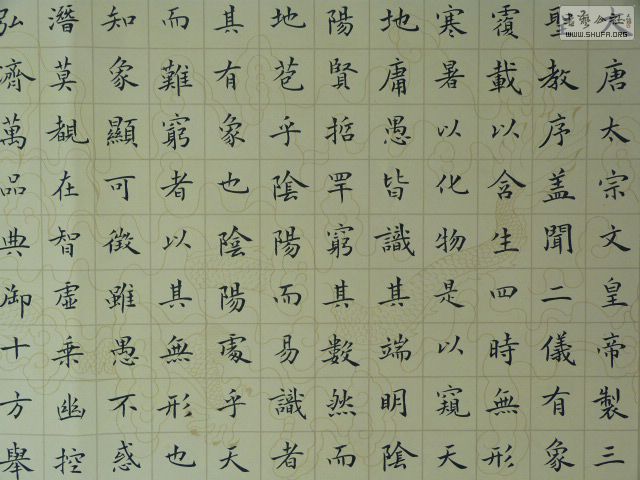 唐太宗文皇帝製三
聖教序蓋聞二儀有象
覆載以含生四時無形
寒暑以化物是以窺天
地庸愚皆識其端明陰
陽賢哲罕窮其數然而
地苞乎陰陽而易識者
其有象也陰陽處乎天
而難窮者以其無形也
知象顯可徵雖愚不惑
潛莫覩在智虛乘幽控
弘濟萬品典御十方舉
WWW.SHUFA.ORG